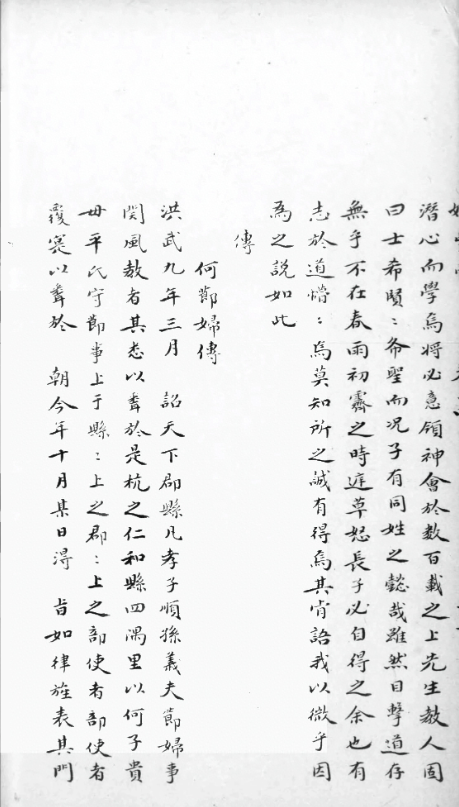 潛心而學焉將必意領神會於數百載之上先生教人固
曰士希賢〻希聖而况子有同姓之懿哉雖然目擊道存
無乎不在春雨初霽之時庭草怒長子必自得之余也有
志於道懵〻焉莫知所之誠有得焉其肯語我以微乎因
為之説如此
傳
何節婦傳
洪武九年三月 詔天下郡縣凡孝子順孫義夫節婦事
関風教者其悉以聞於是杭之仁和縣四隅里以何子貴
母平氏守節事上于縣〻上之郡〻上之部使者部使者
覆寔以聞於 朝今年十月某日得 旨如律旌表其門